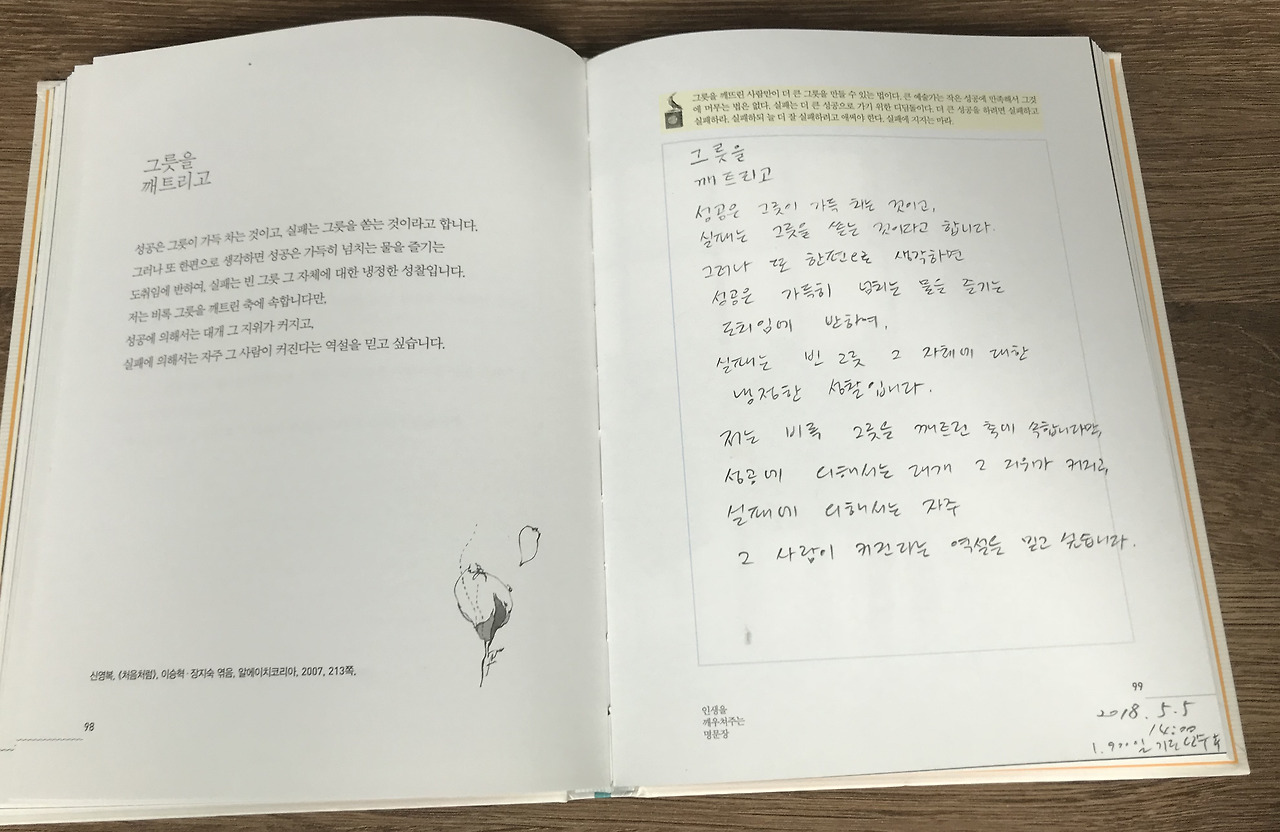 그릇을
깨트리고
성공은 그릇이 가득 차는 것이고, 실패는 그릇을 쏟는 것이라고 합니다.
그러나 또 한편으로 생각하면 성공은 가득히 넘치는 물을 즐기는
도취임에 반하여, 실패는 빈 그릇 그 자체에 대한 냉정한 성찰입니다.
저는 비록 그릇을 깨트린 축에 속합니다만,
성공에 의해서는 대개 그 지위가 커지고,
실패에 의해서는 자주 그 사람이 커진다는 역설을 믿고 싶습니다.
신영복, 《처음처럼》, 이승혁·장지숙 엮음, 알에이치코리아, 2007, 213쪽.
98
그릇을 깨뜨린 사람만이 더 큰 그릇을 만들 수 있는 법이다. 큰 예술가는 작은 성공에 만족해서 그것
에 머무는 법은 없다. 실패는 더 큰 성공으로 가기 위한 디딤돌이다. 더 큰 성공을 하려면 실패하고
실패하라. 실패하되 늘 더 잘 실패하려고 애써야 한다. 실패에 지지는 마라.
그릇을
깨트리고
성공은 그릇이 가득 차는 것이고,
실패는 그릇을 쏟는 것이라고 합니다.
그러나 또 한편으로 생각하면
성공은 가득히 넘치는 물을 즐기는
도취임에 반하여,
실패는 빈 그릇 그 자체에 대한
냉정한 성찰입니다.
저는 비록 그릇을 깨트린 축에 속합니다만,
성공에 의해서는 대개 그 지위가 커지고,
실패에 의해서는 자주
그 사람이 커진다는 역설을 믿고 싶습니다.
99
인생을
깨우쳐주는
명문장
2018. 5. 5
14:00